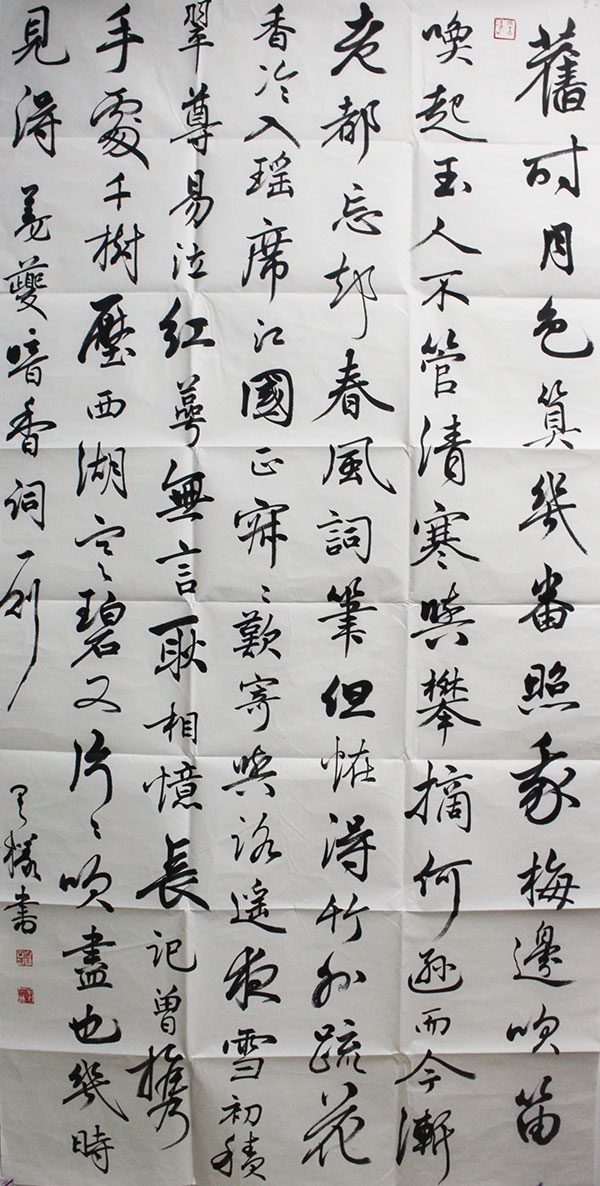 舊时月色算幾番照我梅邊吹笛
喚起玉人不管清寒與攀摘何遜而今漸
老都忘却春風詞筆但恠得竹外疏花
香冷入瑶席江國正寂々歎寄與路遥夜雪初積
翠尊易泣紅萼無言耿相憶長記曾攜
手處千樹壓西湖寒碧又片々吹盡也幾時
見得姜夔暗香詞一則
書